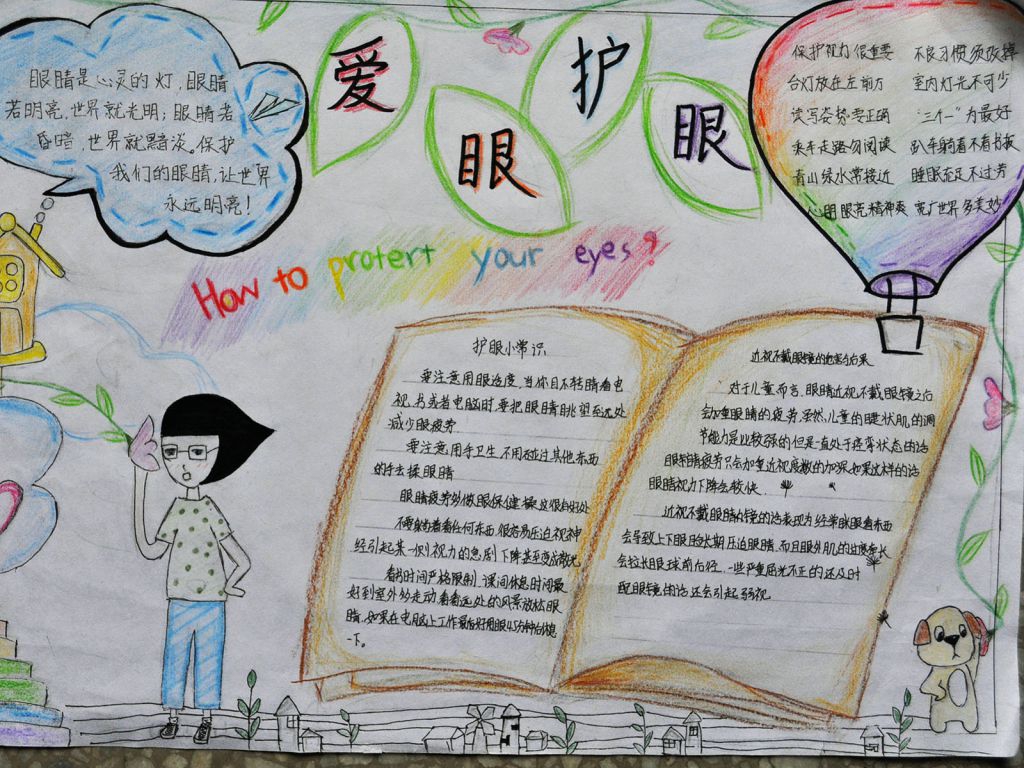 爱护眼眼
眼睛是心灵的灯,眼睛
若明亮,世界就光明;眼睛若
昏暗,世界就黯淡。保护
我们的眼睛,让世界
永远明亮!
保护视力很重要 不良习惯须改掉
台灯放在左前方 室内灯光不可少
读写姿势要正确 "三个一"为最好
乘车走路勿阅读 趴车躺着不看书报
青山绿水常接近 睡眠充足不过劳
心明眼亮精神爽 宽广世界多美妙
How to protert your eyes?
护眼小常识
要注意用眼适度,当你目不转睛看电
视,书或者电脑时,要把眼睛眺望至远处
减少眼疲劳
要注意用手卫生 不用碰过其他东西
的手去揉眼睛
眼睛疲劳外做眼保健操这很有好处
不要躺着看任何东西很容易压迫视神
经引起某一侧视力的急剧下降甚至变成散光
看书时间严格限制,课间休息时间最
好到室外多走动看看远处的风景放松眼
睛,如果在电脑上工作最好用眼45分钟休息
一下。
近视不戴眼镜的危害和后果
对于儿童而言,眼睛近视不戴眼镜之后
会加重眼睛的疲劳,虽然儿童的睫状肌的调
节能力是比较强的但是一直处于痉挛状态的话
眼睛疲劳只会加重近视度数的加深,如果这样的话
眼睛视力下降会较快.
近视不戴眼镜的话表现为经常眯眼看东西
会导致上下眼睑长期压迫眼睛,而且眼外肌的
会拉长眼球前后径,一些严重屈光不正的还及时
配眼镜的话还会引起弱视